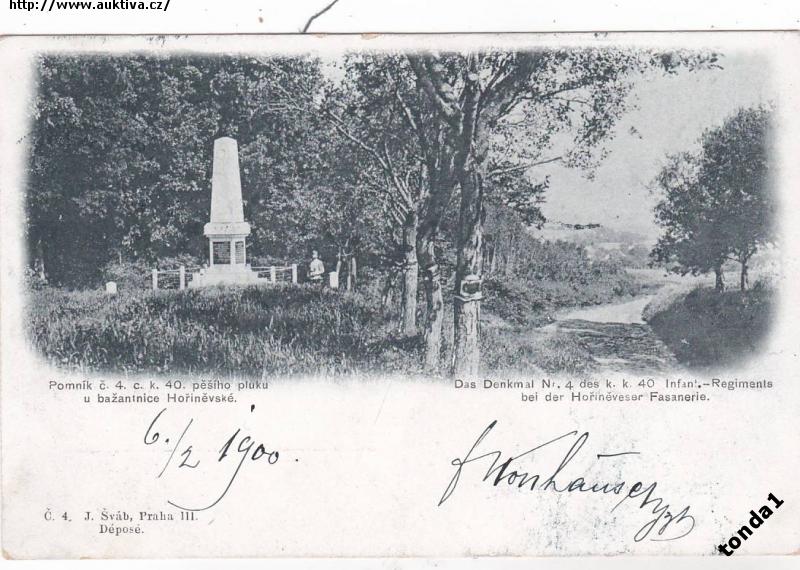 http://www.auktiva.cz/
Pomník č. 4. c. k. 40. pěšího pluku
u bažantnice Hořiněvské.
Das Denkmal Nr. 4 des k. k. 40 Infant.-Regiments
bei der Hořiněveser Fasanerie.
6./2 1900.
Č. 4. J. Šváb, Praha III.
Déposé.
tonda1